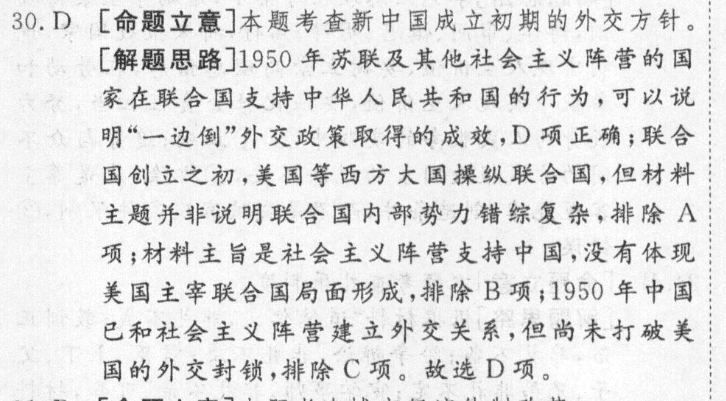 30. D [命题立意]本题考查新中国成立初期的外交方针。
[解题思路]1950 年苏联及其他社会主义阵营的国
家在联合国支持中华人民共和国的行为,可以说
明“一边倒”外交政策取得的成效,D 项正确;联合
国创立之初,美国等西方大国操纵联合国,但材料
主题并非说明联合国内部势力错综复杂,排除 A
项;材料主旨是社会主义阵营支持中国,没有体现
美国主宰联合国局面形成,排除 B 项;1950 年中国
已和社会主义阵营建立外交关系,但尚未打破美
国的外交封锁,排除 C 项。故选 D 项。